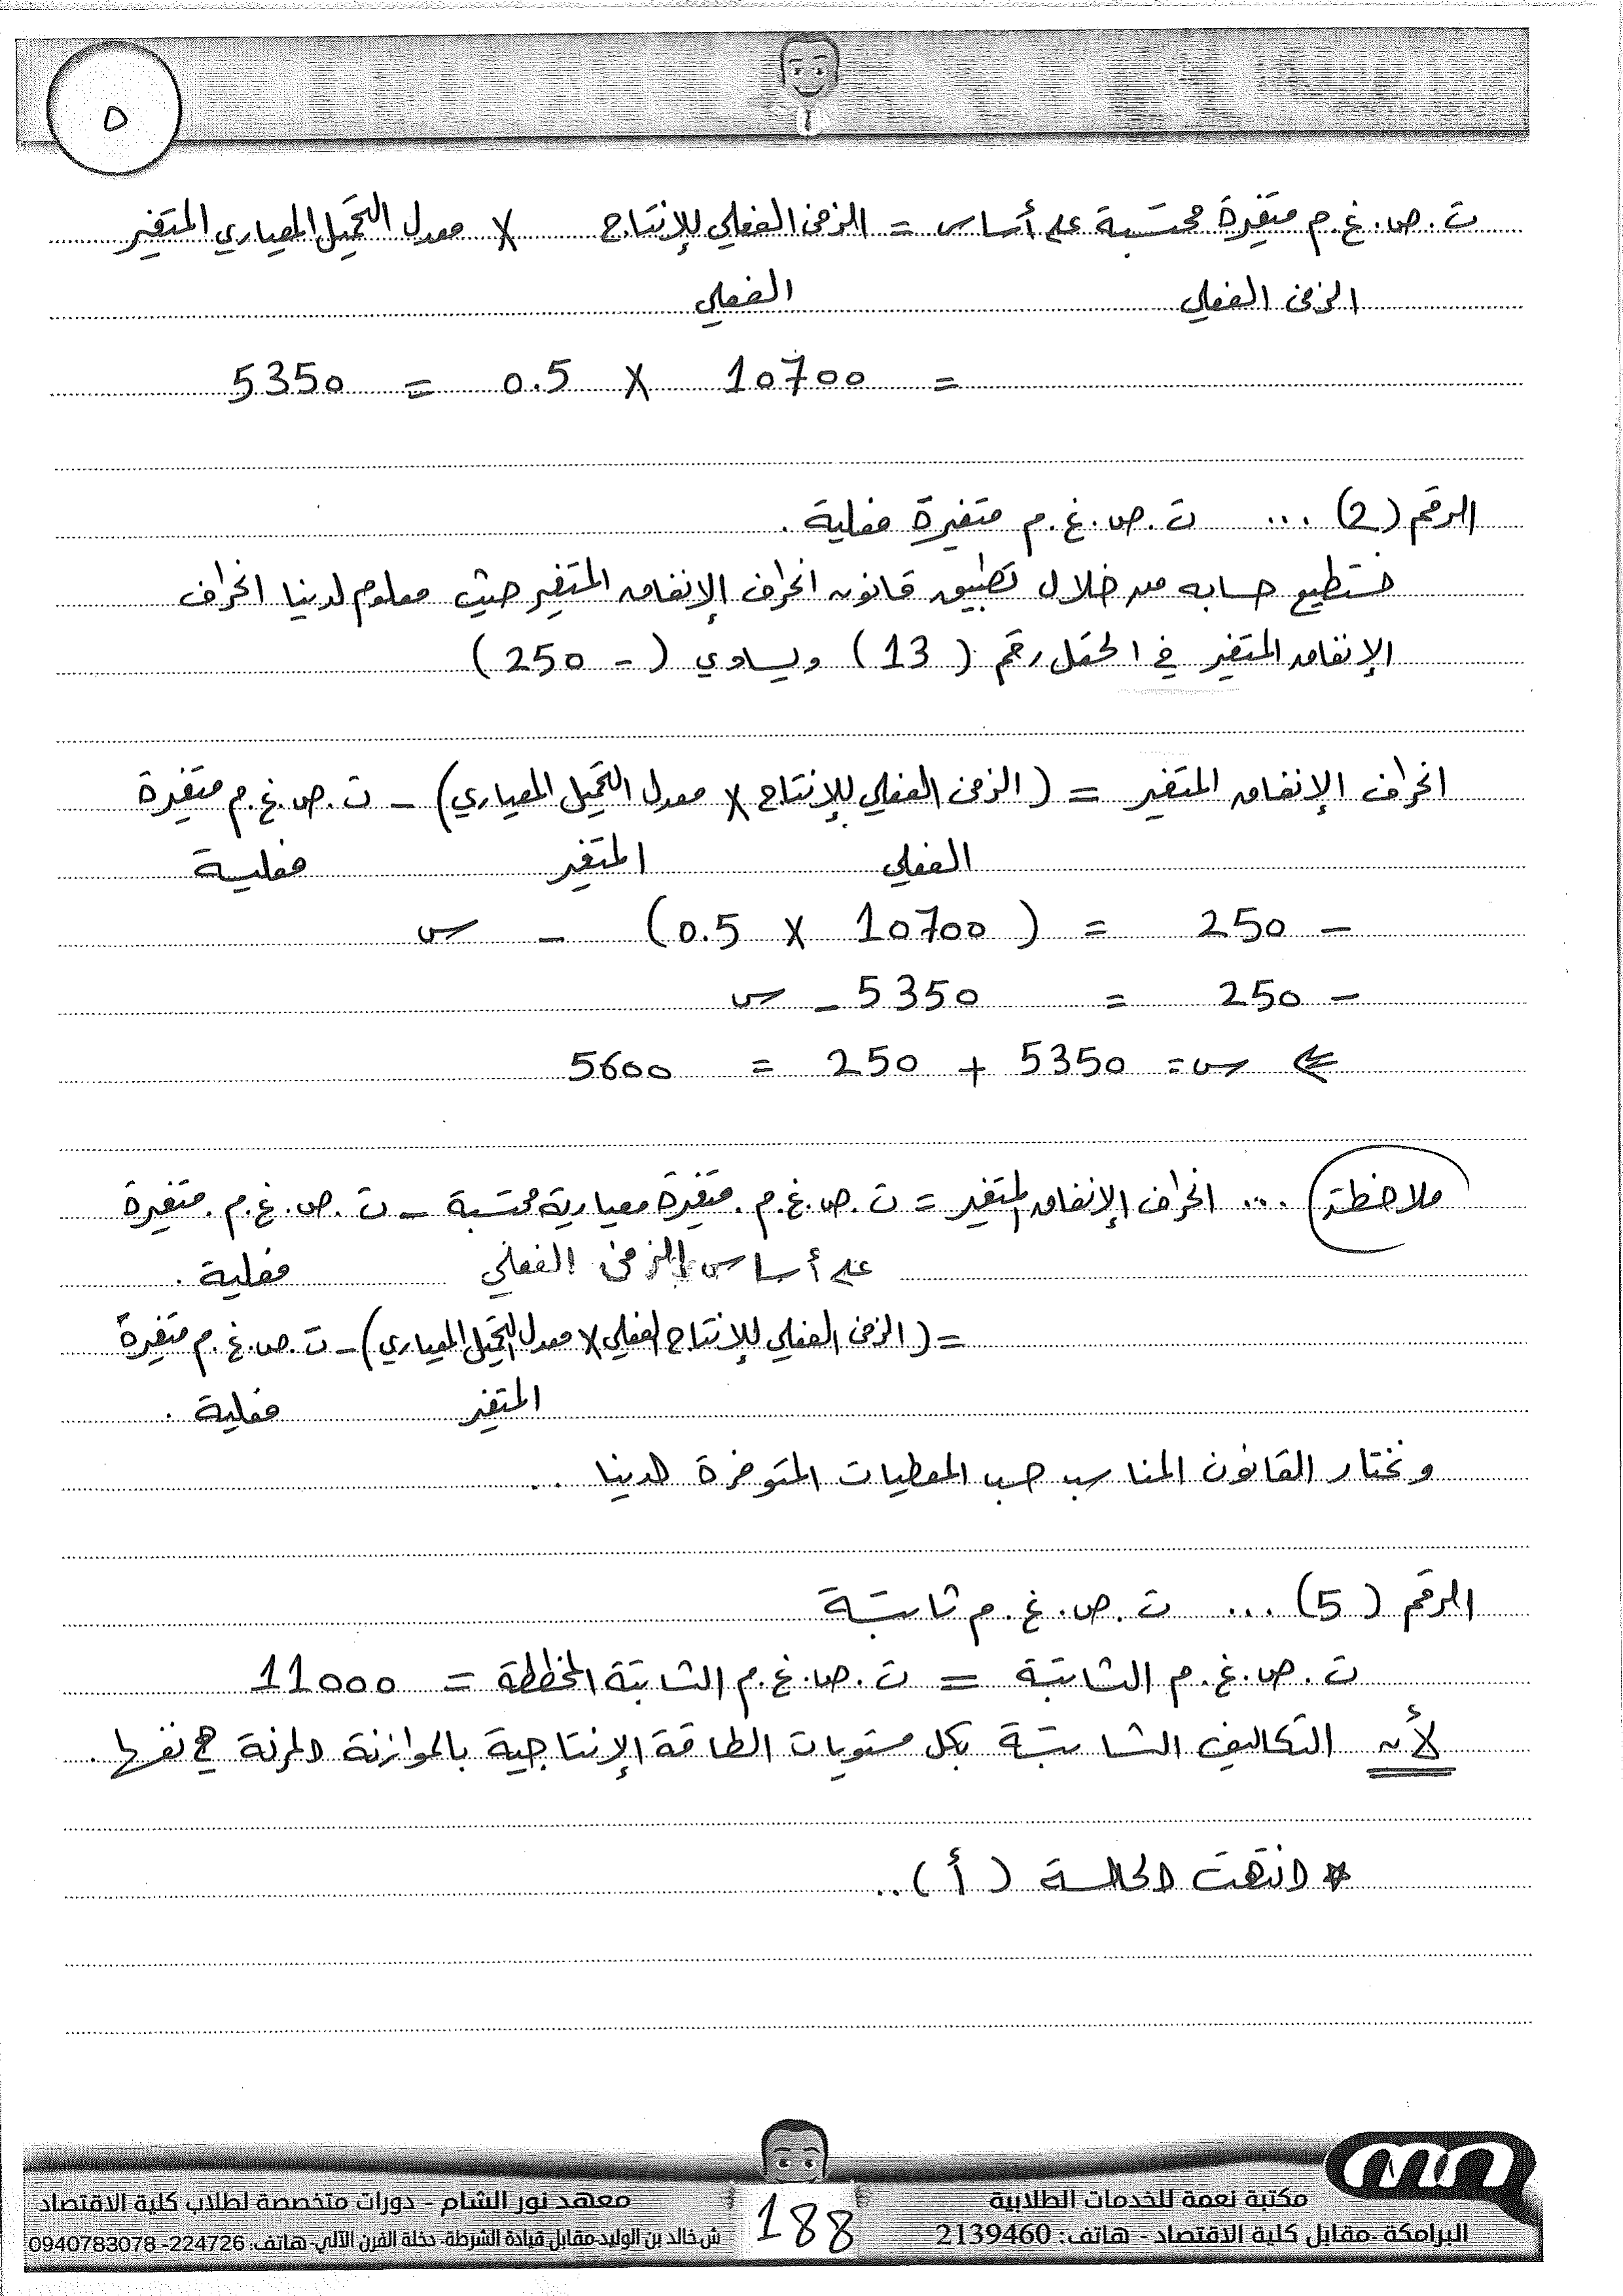 ٥
ت.ص.غ.م متغيرة محتسبة على أساس = الزمن الفعلي للإنتاج X معدل التحميل المعياري المتغير
الزمن الفعلي الفعلي
= 10700 X 0.5 = 5350
الرقم (2) ... ت.ص.غ.م متغيرة فعلية.
نستطيع حسابه من خلال تطبيق قانون انحراف الإنفاق المتغير حيث معلوم لدينا انحراف
الإنفاق المتغير في الحقل رقم (13) ويساوي (- 250)
انحراف الإنفاق المتغير = (الزمن الفعلي للإنتاج X معدل التحميل المعياري) - ت.ص.غ.م متغيرة
الفعلي المتغير فعلية
- 250 = (10700 X 0.5) - س
- 250 = 5350 - س
⇐ س = 5350 + 250 = 5600
ملاحظة ... انحراف الإنفاق المتغير = ت.ص.غ.م. متغيرة معيارية محتسبة - ت.ص.غ.م. متغيرة
على أساس الزمن الفعلي فعلية.
= (الزمن الفعلي للإنتاج الفعلي X معدل التحميل المعياري) - ت.ص.غ.م متغيرة
المتغير فعلية.
ونختار القانون المناسب حسب المعطيات المتوفرة لدينا ..
الرقم (5) ... ت.ص.غ.م ثابتة
ت.ص.غ.م الثابتة = ت.ص.غ.م الثابتة المخططة = 11000
لأن التكاليف الثابتة بكل مستويات الطاقة الإنتاجية بالموازنة المرنة هي نفسها.
* انتهت الحالة (أ)..
مكتبة نعمة للخدمات الطلابية
البرامكة -مقابل كلية الاقتصاد - هاتف: 2139460
188
معهد نور الشام - دورات متخصصة لطلاب كلية الاقتصاد
ش خالد بن الوليد-مقابل قيادة الشرطة- دخلة الفرن الآلي- هاتف: 224726- 0940783078